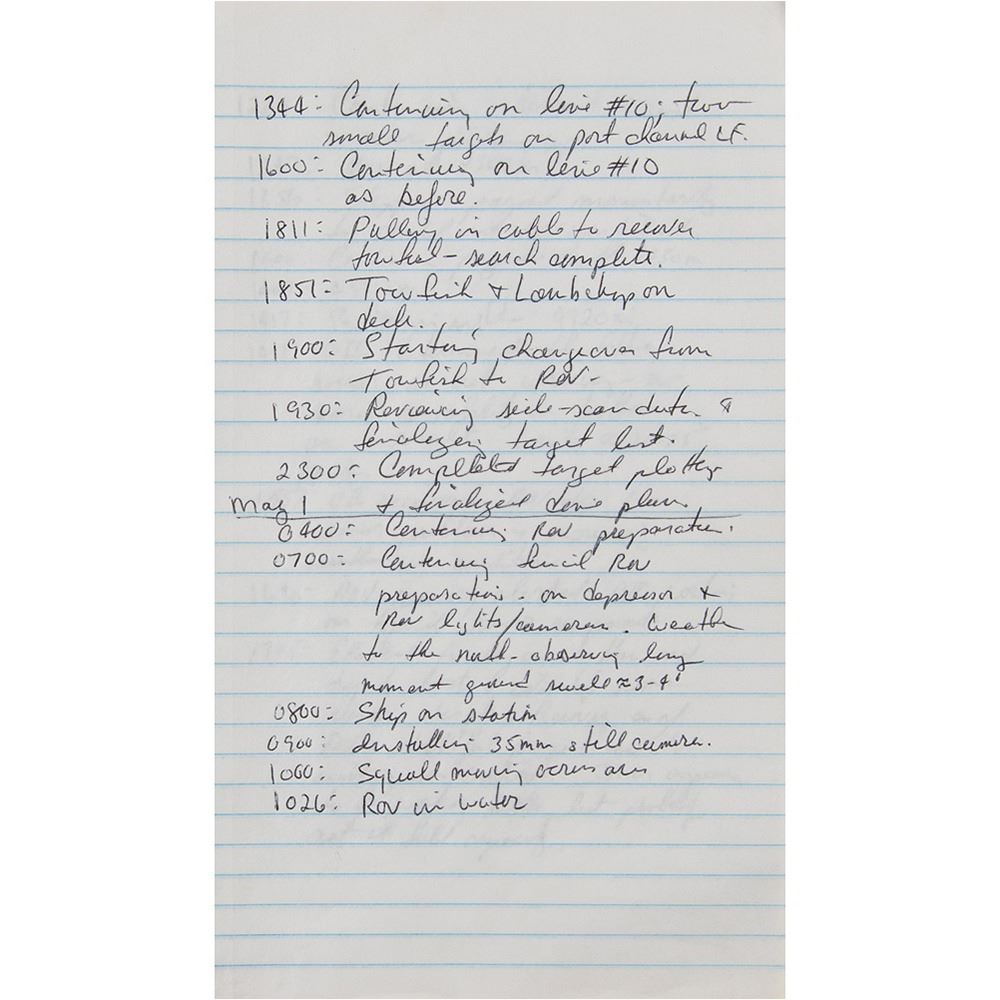 1344: Continuing on line #10; two
small targets on port channel LF.
1600: Continuing on line #10
as before.
1811: Pulling in cable to recover
towfish - search complete.
1851: Towfish + on
deck.
1900: Starting changeover from
Towfish to ROV-
1930: Reviewing side-scan data &
finalizing target list.
2300: Completed target plotting
May 1 + finalized dive plan.
0400: Continuing ROV preparation.
0700: Continuing final ROV
preparations - on depressor +
ROV lights/cameras. Weather
to the north - observing long
moment ground swell ≈ 3-4'
0800: Ship on station
0900: Installing 35mm still camera.
1000: Squall moving across area
1026: ROV in water